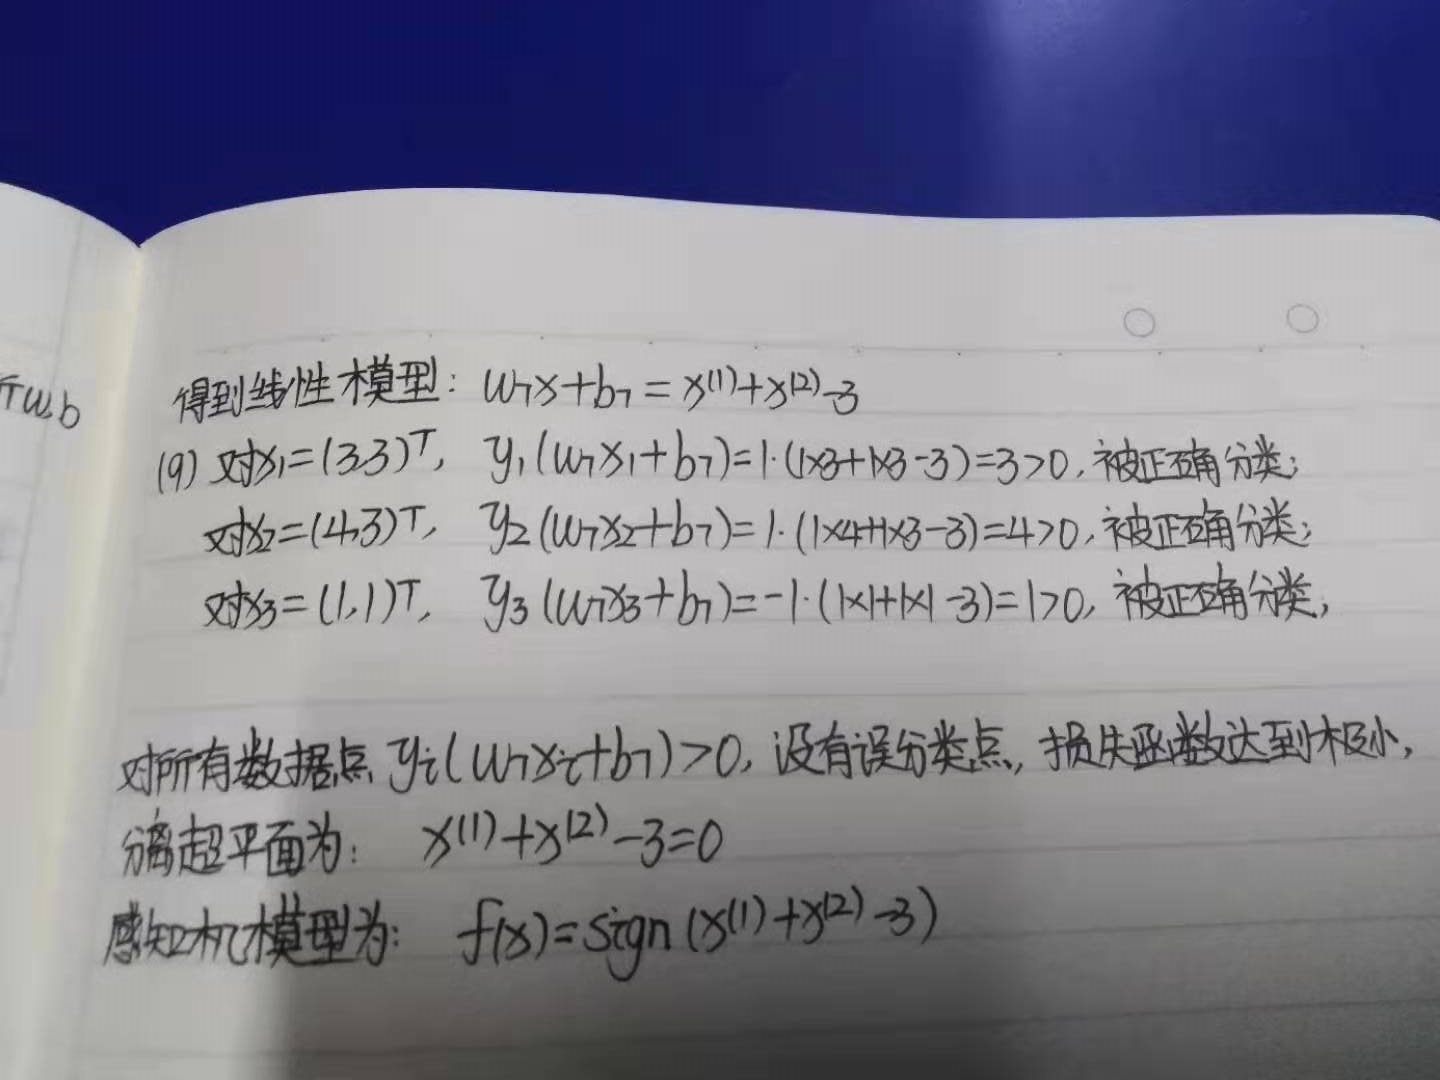 得到线性模型: w₇x+b₇=x⁽¹⁾+x⁽²⁾-3
w,b
(9) 对x₁=(3,3)ᵀ, y₁(w₇x₁+b₇)=1·(1×3+1×3-3)=3>0,被正确分类;
对x₂=(4,3)ᵀ, y₂(w₇x₂+b₇)=1·(1×4+1×3-3)=4>0,被正确分类;
对x₃=(1,1)ᵀ, y₃(w₇x₃+b₇)=-1·(1×1+1×1-3)=1>0,被正确分类,
对所有数据点 yᵢ(w₇xᵢ+b₇)>0,没有误分类点,损失函数达到极小,
分离超平面为: x⁽¹⁾+x⁽²⁾-3=0
感知机模型为: f(x)=sign(x⁽¹⁾+x⁽²⁾-3)